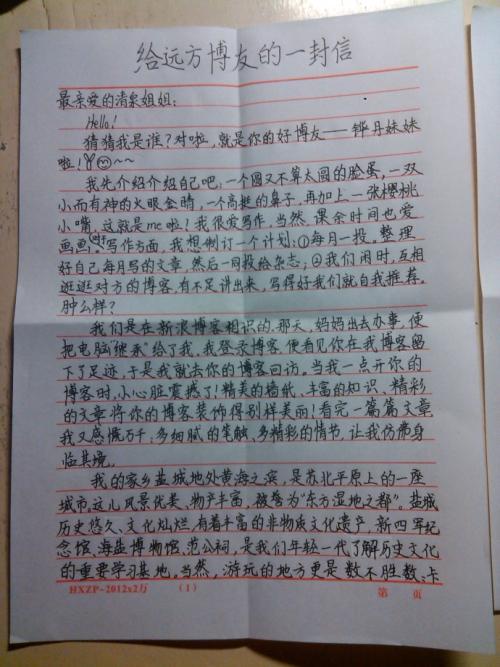 给远方博友的一封信
最亲爱的清泉姐姐：
Hello!
猜猜我是谁？对啦，就是你的好博友——铧丹妹妹
啦！~~
我先介绍介绍自己吧：一个圆又不算太圆的脸蛋，一双
小而有神的火眼金睛，一个高挺的鼻子，再加上一张樱桃
小嘴，这就是me啦！我很爱写作，当然，课余时间也爱
画画。对于写作方面，我想制订一个计划：①每月一投。整理
好自己每月写的文章，然后一同投给杂志；②我们闲时，互相
逛逛对方的博客，有不足讲出来，写得好我们就自我推荐。
肿么样？
我们是在新浪博客相识的，那天，妈妈出去办事，便
把电脑“继承”给了我，我登录博客，便看见你在我博客留
下了足迹，于是我就去你的博客回访。当我一点开你的
博客时，小心脏震撼了！精美的墙纸、丰富的知识、精彩
的文章将你的博客装饰得别样美丽！看完一篇篇文章
我又感慨万千：多细腻的笔触、多精彩的情节，让我仿佛身
临其境。
我的家乡盐城地处黄海之滨，是苏北平原上的一座
城市。这儿风景优美，物产丰富，被誉为“东方湿地之都”。盐城
历史悠久、文化灿烂，有着丰富的非物质文化遗产，新四军纪
念馆、海盐博物馆、范公祠，是我们年轻一代了解历史文化
的重要学习基地。当然，游玩的地方更是数不胜数：卡
HXZP-2012x2万 （1） 第 页